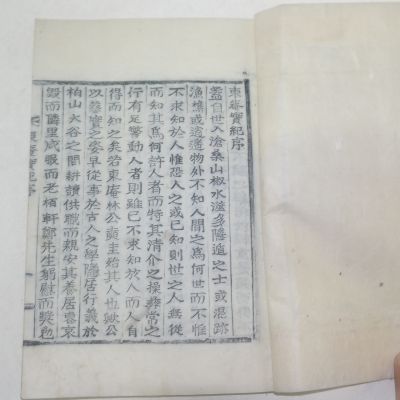 東菴實紀序
蓋自世入滄桑山椒水滋多隱遁之士或混跡
漁樵或逍遙物外不知人間之爲何世而不惟
不求知於人惟恐人之或已知則世之人無從
而知其爲何許人者而特其清介之操彝常之
行有足警動人者則雖已不求知於人而人自
得而知之矣若東庵林公 其人也歟公
以 實之姿早從事於古人之學隱居行義於
柏山大谷之間耕讀供職而親安其養居喪來
毁而隣里咸服而老栢軒鄭先生躬慰而奬危
東菴實紀序